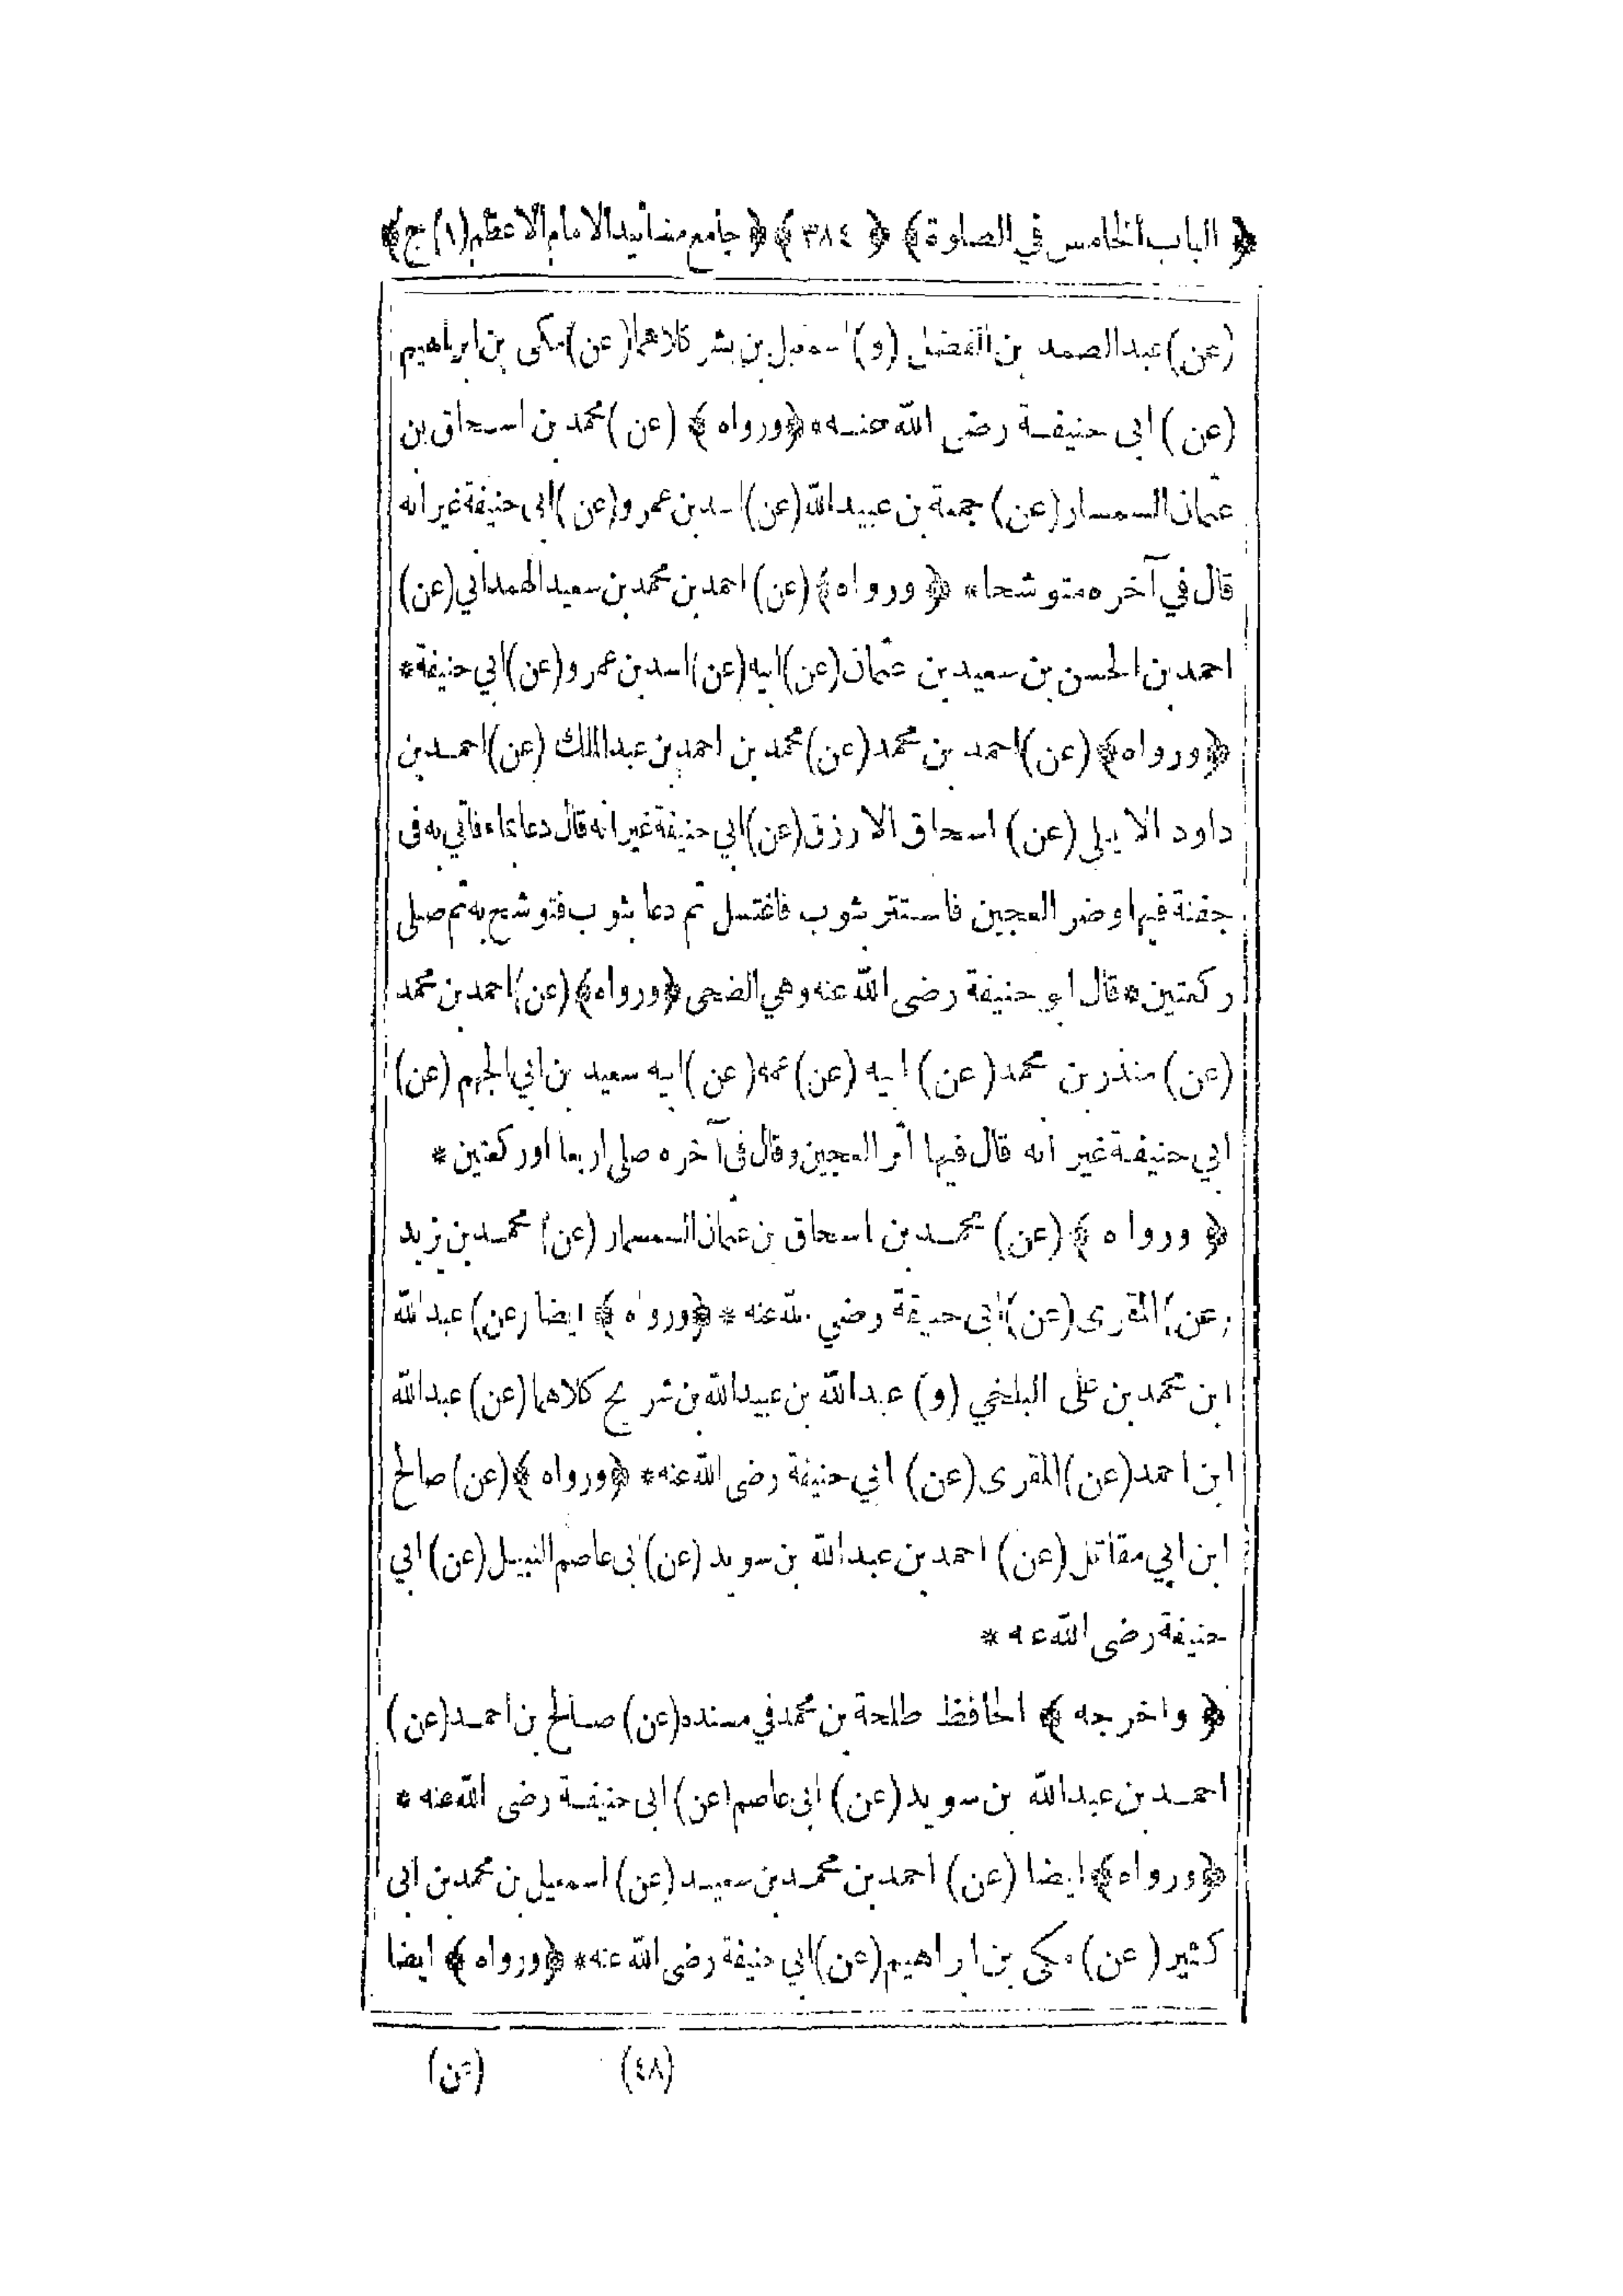 ﴿ الباب الخامس في الصلوة ﴾ ﴿ ٣٨٤ ﴾ ﴿ جامع مسانيد الامام الاعظم (١) ج ﴾
(عن) عبدالصمد بن الفضل (و) اسمعيل بن بشر كلاهما (عن) مكى بن ابراهيم
(عن) ابى حنيفة رضى الله عنه * ﴿ورواه﴾ (عن) محمد بن اسحاق بن
عثمان السمسار (عن) جمعة بن عبيدالله (عن) اسد بن عمرو (عن) ابى حنيفة غير انه
قال في آخره متوشحا * ﴿ورواه﴾ (عن) احمد بن محمد بن سعيد الهمداني (عن)
احمد بن الحسن بن سعيد بن عثمان (عن) ابيه (عن) اسد بن عمرو (عن) ابي حنيفة *
﴿ورواه﴾ (عن) احمد بن محمد (عن) محمد بن احمد بن عبدالملك (عن) احمد بن
داود الايلى (عن) اسحاق الازرق (عن) ابي حنيفة غير انه قال دعا بماء فاتي به فى
جفنة فيها وضر العجين فاستتر بثوب فاغتسل ثم دعا بثوب فتوشح به ثم صلى
ركعتين * قال ابو حنيفة رضى الله عنه وهي الضحى ﴿ورواه﴾ (عن) احمد بن محمد
(عن) منذر بن محمد (عن) ابيه (عن) عمه (عن) ابيه سعيد بن ابي الجهم (عن)
ابي حنيفة غير انه قال فيها اثر العجين وقال فى آخره صلى اربعا اور كعتين *
﴿ورواه﴾ (عن) محمد بن اسحاق بن عثمان السمسار (عن) محمد بن يزيد
(عن) المقرى (عن) ابى حنيفة رضي الله عنه * ﴿ورواه﴾ ايضا (عن) عبدالله
ابن محمد بن على البلخي (و) عبدالله بن عبيدالله بن شريح كلاهما (عن) عبدالله
ابن احمد (عن) المقرى (عن) ابي حنيفة رضى الله عنه * ﴿ورواه﴾ (عن) صالح
ابن ابي مقاتل (عن) احمد بن عبدالله بن سويد (عن) ابى عاصم النبيل (عن) ابي
حنيفة رضى الله عنه *
﴿واخرجه﴾ الحافظ طلحة بن محمد في مسنده (عن) صالح بن احمد (عن)
احمد بن عبدالله بن سويد (عن) ابى عاصم (عن) ابى حنيفة رضى الله عنه *
﴿ورواه﴾ ايضا (عن) احمد بن محمد بن سعيد (عن) اسمعيل بن محمد بن ابى
كثير (عن) مكى بن ابراهيم (عن) ابي حنيفة رضى الله عنه * ﴿ورواه﴾ ايضا
(٤٨) (عن)